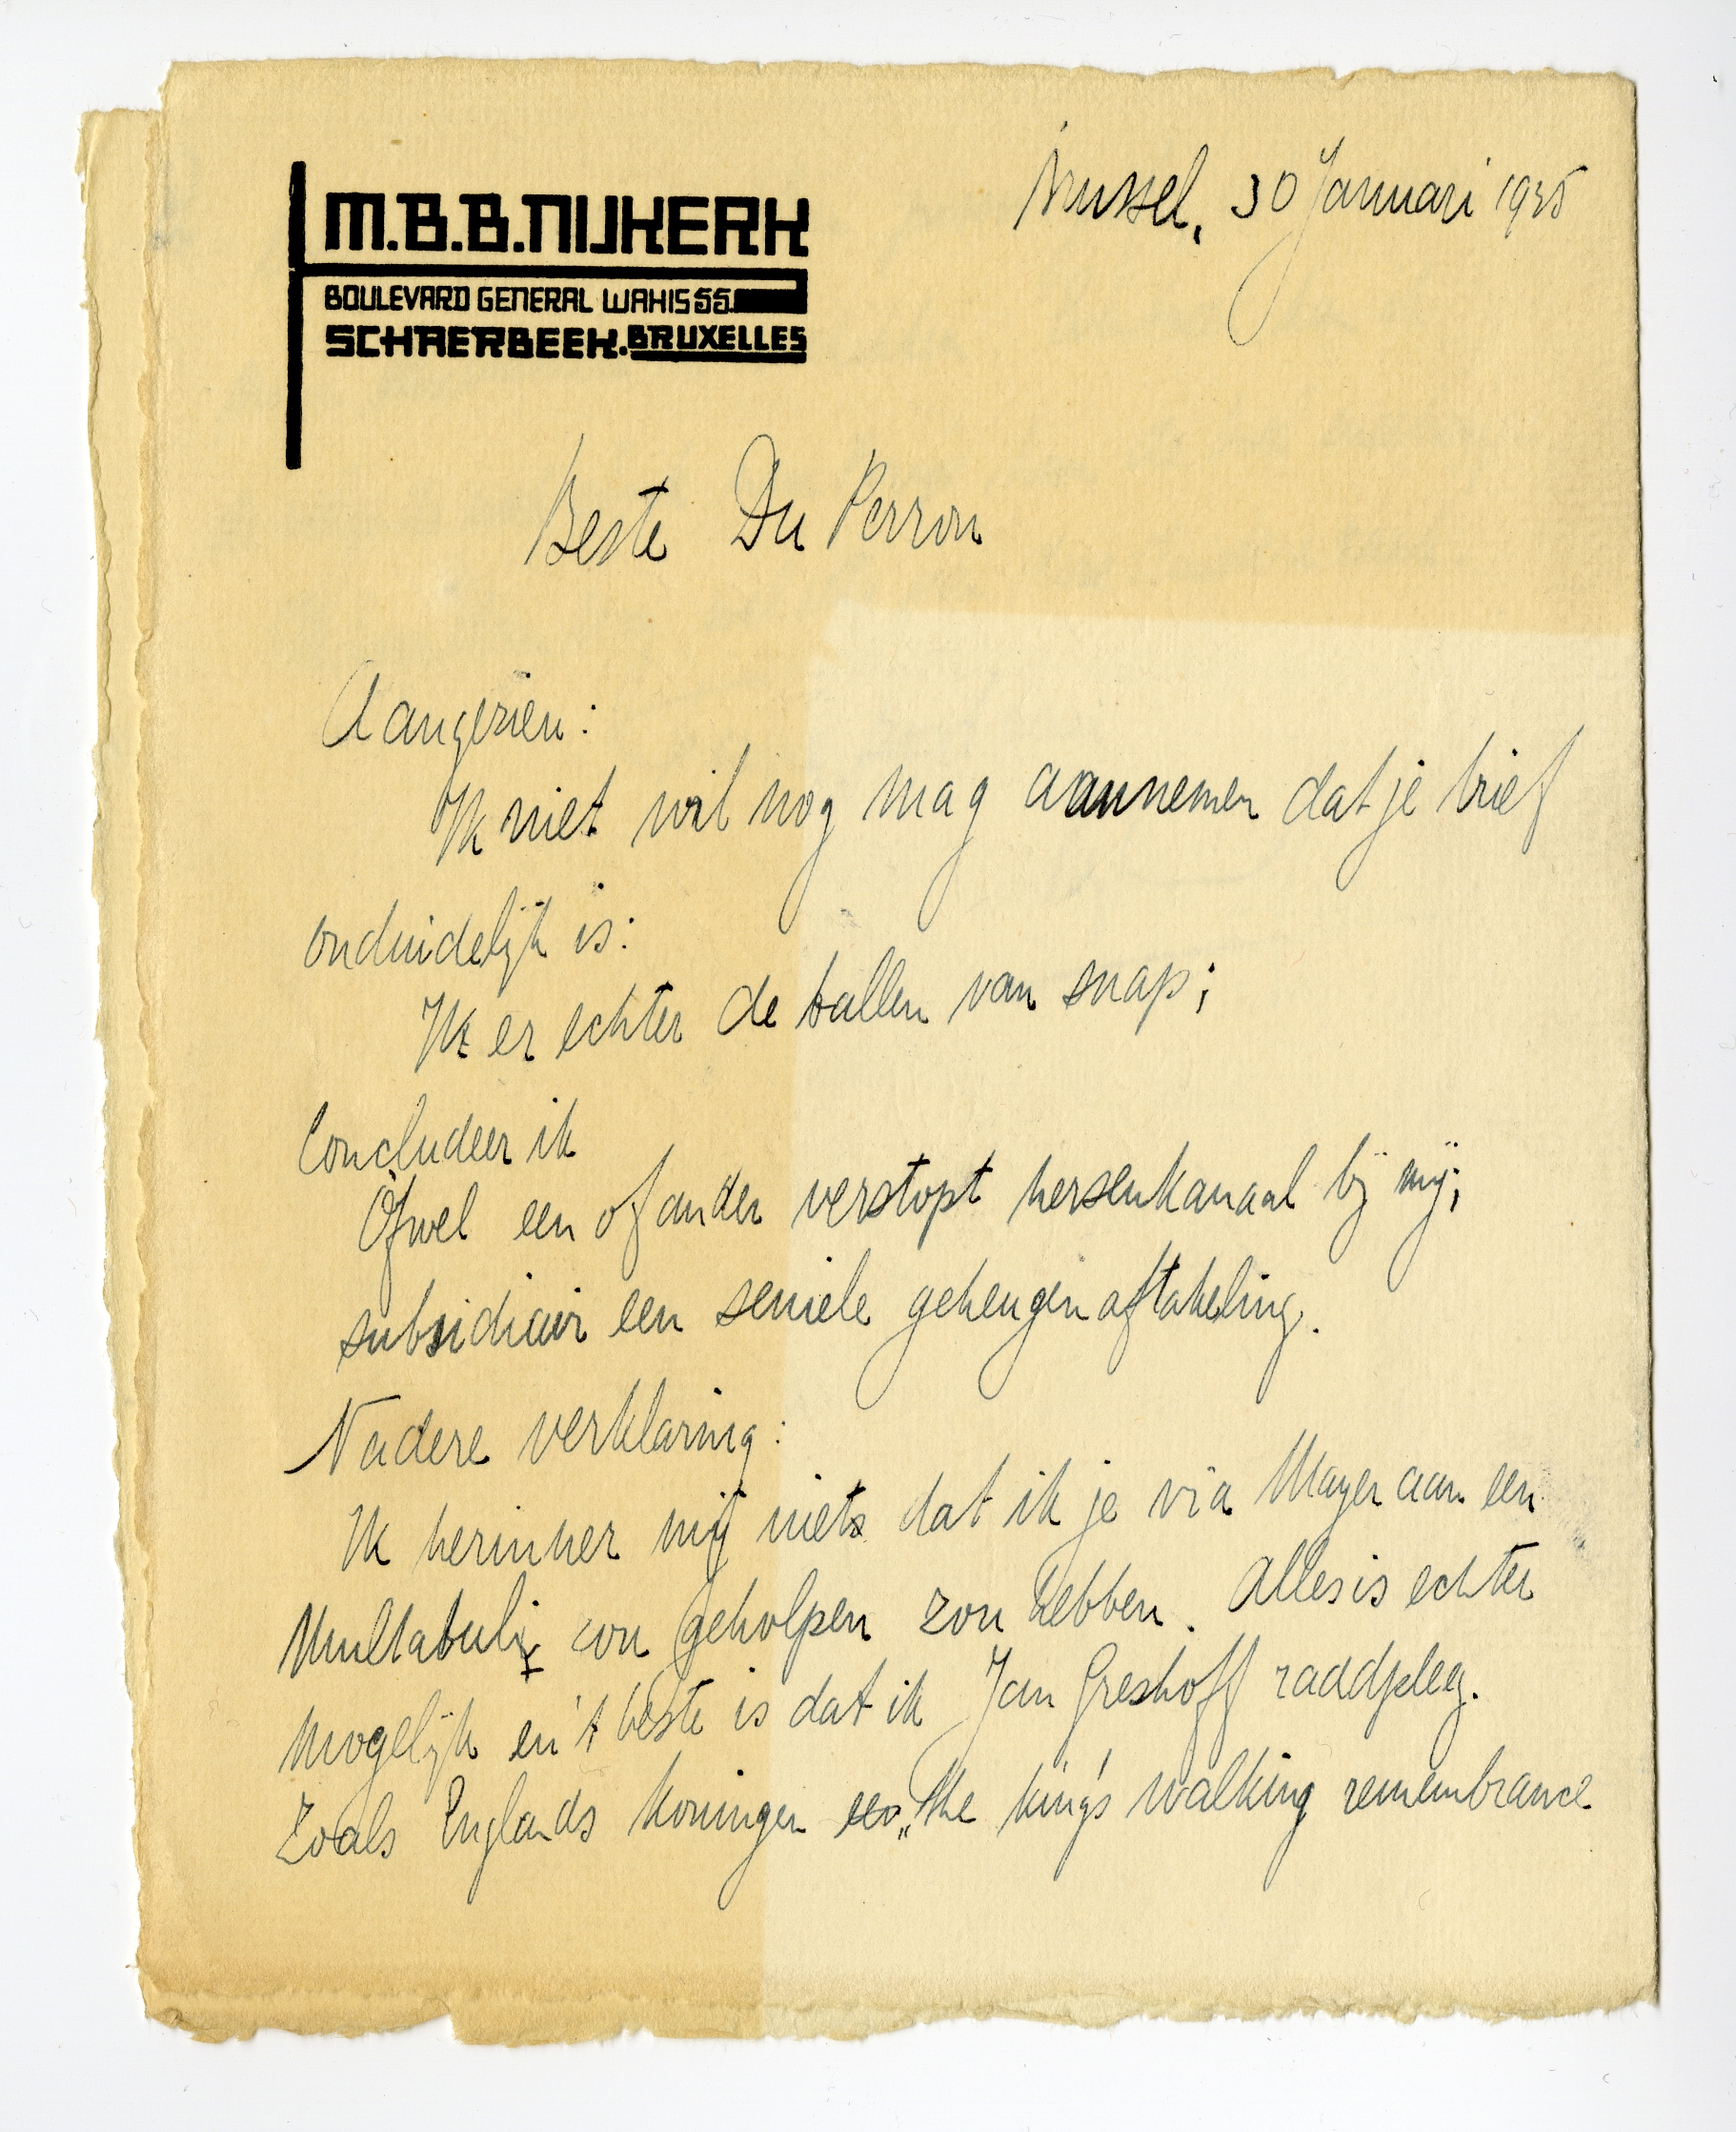 M.B.B. NIJKERK
BOULEVARD GENERAL WAHIS 55.
SCHAERBEEK. BRUXELLES
Brussel, 30 Januari 1935
Beste Du Perron
Aangezien:
Ik niet wil nog mag aannemen dat je brief
onduidelijk is:
Ik er echter de ballen van snap;
Concludeer ik
Òfwel een of ander verstopt hersenkanaal bij mij;
subsidiair een seniele geheugenaftakeling.
Nadere verklaring:
Ik herinner mij niets dat ik je via Mayer aan een
Multatuli zou geholpen zou hebben. Alles is echter
mogelijk en 't beste is dat ik Jan Greshoff raadpleeg.
Zoals Englands koningen een „the king's walking remembrance